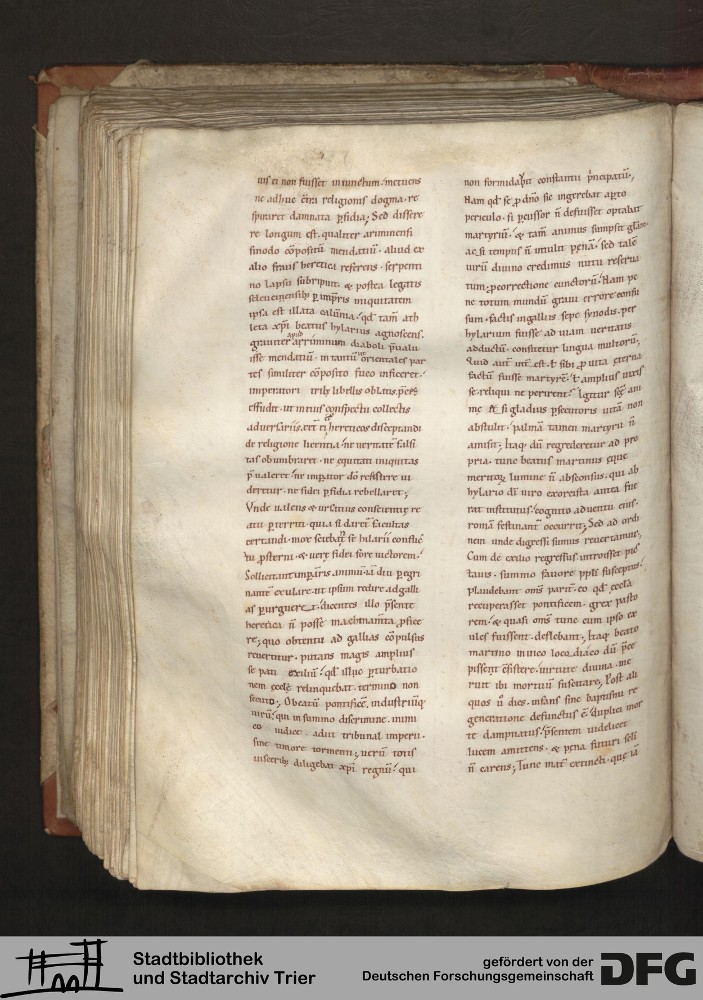 uis ei non fuisset iniunctum. metuens
ne adhuc cūra religionis dogma. re
spiraret damnata p̄fidia; Sed dissere
re longum est. qualiter ariminensi
sinodo cōpositū mendatiū. aliud ex
alio fraus heretica referens. serpenti
no lapsu subripuit. & postea legatis
seleucinensib; p impr̄is iniquitatem
ipsa est illata calūnia. qd̄ tam̄ ath
leta xp̄i beatus hylarius agnoscens.
grauiter apud arriminum diaboli p̄ualu
isse mendatiū. in tantū ut orientales par
tes similiter cōposito fuco inficeret.
imperatori trib; libellis oblatis. p̄ces
effudit. ut in eius conspectu collectis
aduersariis. eēt ei cū hereticos disceptandi
de religione licentia. ne ueritatē falsi
tas obumbraret. ne equitati iniquitas
p̄ualeret. ne impator dō resistere ui
deretur. ne fidei p̄fidia rebellaret;
Vnde ualens & ursatius conscientię re
atu pterriti. quia si daret᷑ facultas
certandi. mox sciebant se hilarii conflic
tu p̄sterni. & uerę fidei fore uictorem.
Sollicitant impatoris animū. iā diu pegri
nantē exulare. ut ipsum redire ad galli
as purguere t. dicentes illo p̄sente
heretica n̄ posse machinam̄ta p̄fice
re; quo obtentu ad gallias cōpulsus
reuertitur. putans magis amplius
se pati exiliū. qd̄ illuc pturbatio
nem ęcclę relinquebat. termino non
secuto; O beatū pontificē. industriūq;
uirū. qui in summo discrimine. inimi
co iudice. adiit tribunal imperii.
sine timore tormenti; uerū totis
uisceribꝰ diligebat xp̄i regnū. qui
non formidabit constantii p̄ncipatū.
Nam qd̄ se p dn̄o sic ingerebat apto
periculo. si pcussor n̄ defuisset optabat
martyriū. & tam̄ animus sumpsit glām.
ac si tempus n̄ intulit penā. sed talē
uirū diuino credimus nutu reserua
tum. p correctione cunctorū. Nam pe
ne totum mundū graui errore confu
sum. factis in gallias sepe synodis. per
hylarium fuisse ad uiam ueritatis
adductū. confitetur lingua multorū.
Quid aut᷑ uni est. t sibi p uita ęterna
factū fuisse martyrē. t amplius uixis
se. reliqui ne perirent. Igitur scę ani
mę & si gladius psecutoris uitā non
abstulit. palmā tamen martyrii n̄
amisit; Itaq; dū regrederetur ad pro
pria. tunc beatus martinus eque
meritorꝫ lumine n̄ absconsus. qui ab
hylario dī uiro exorcista antea fue
rat institutus. cognito aduentu eius.
romā festinant᷑ occurrit; Sed ad ordi
nem unde digressi sumus reuertamur.
Cum de exilio regressus introisset pic
tauis. summo fauore ppli susceptus.
plaudebant om̄s parit᷑. eo qd̄ ęcclā
recuperasset pontificem. grex pasto
rem. & quasi om̄s tunc cum ipso ex
ules fuissent. deflebant; Itaq; beato
martino iunico loco. dia co dū p̄ce
pissent c̄sistere. uirtute diuina. me
ruit ibi mortuū suscitare; Post ali
quos n̄ dies. infans sine baptismi re
generatione defunctus ē. duplici mor
te dampnatus. p̄sentem uidelicet
lucem amittens. & pena futuri seli
n̄ carens; Tunc mat᷑ extincti. que iā
Stadtbibliothek
und Stadtarchiv Trier
gefördert von der
Deutschen Forschungsgemeinschaft
DFG